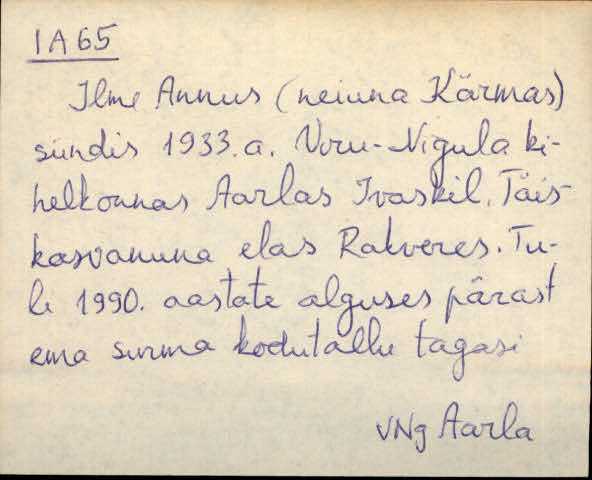 IA65
Ilme Annus (neiuna Kärmas)
sündis 1933.a. Viru-Nigula ki-
helkonnas Aarlas Ivaskil. Täis-
kasvanuna elas Rakveres. Tu-
li 1990. aastate alguses pärast
ema surma kodutallu tagasi
VNg Aarla